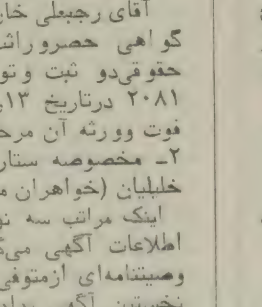 آقای رجبعلی خار
گواهی حصروراثت
حقوقی‌دو ثبت وتو
۲۰۸۱ درتاریخ ۱۳
فوت وورثه آن مرح
۲ـ مخصوصه ستار
خلیلیان (خواهران م
اینک مراتب سه نو
اطلاعات آگهی می‌گ
وصیتنامه‌ای ازمتوفی
نخستین آگهی